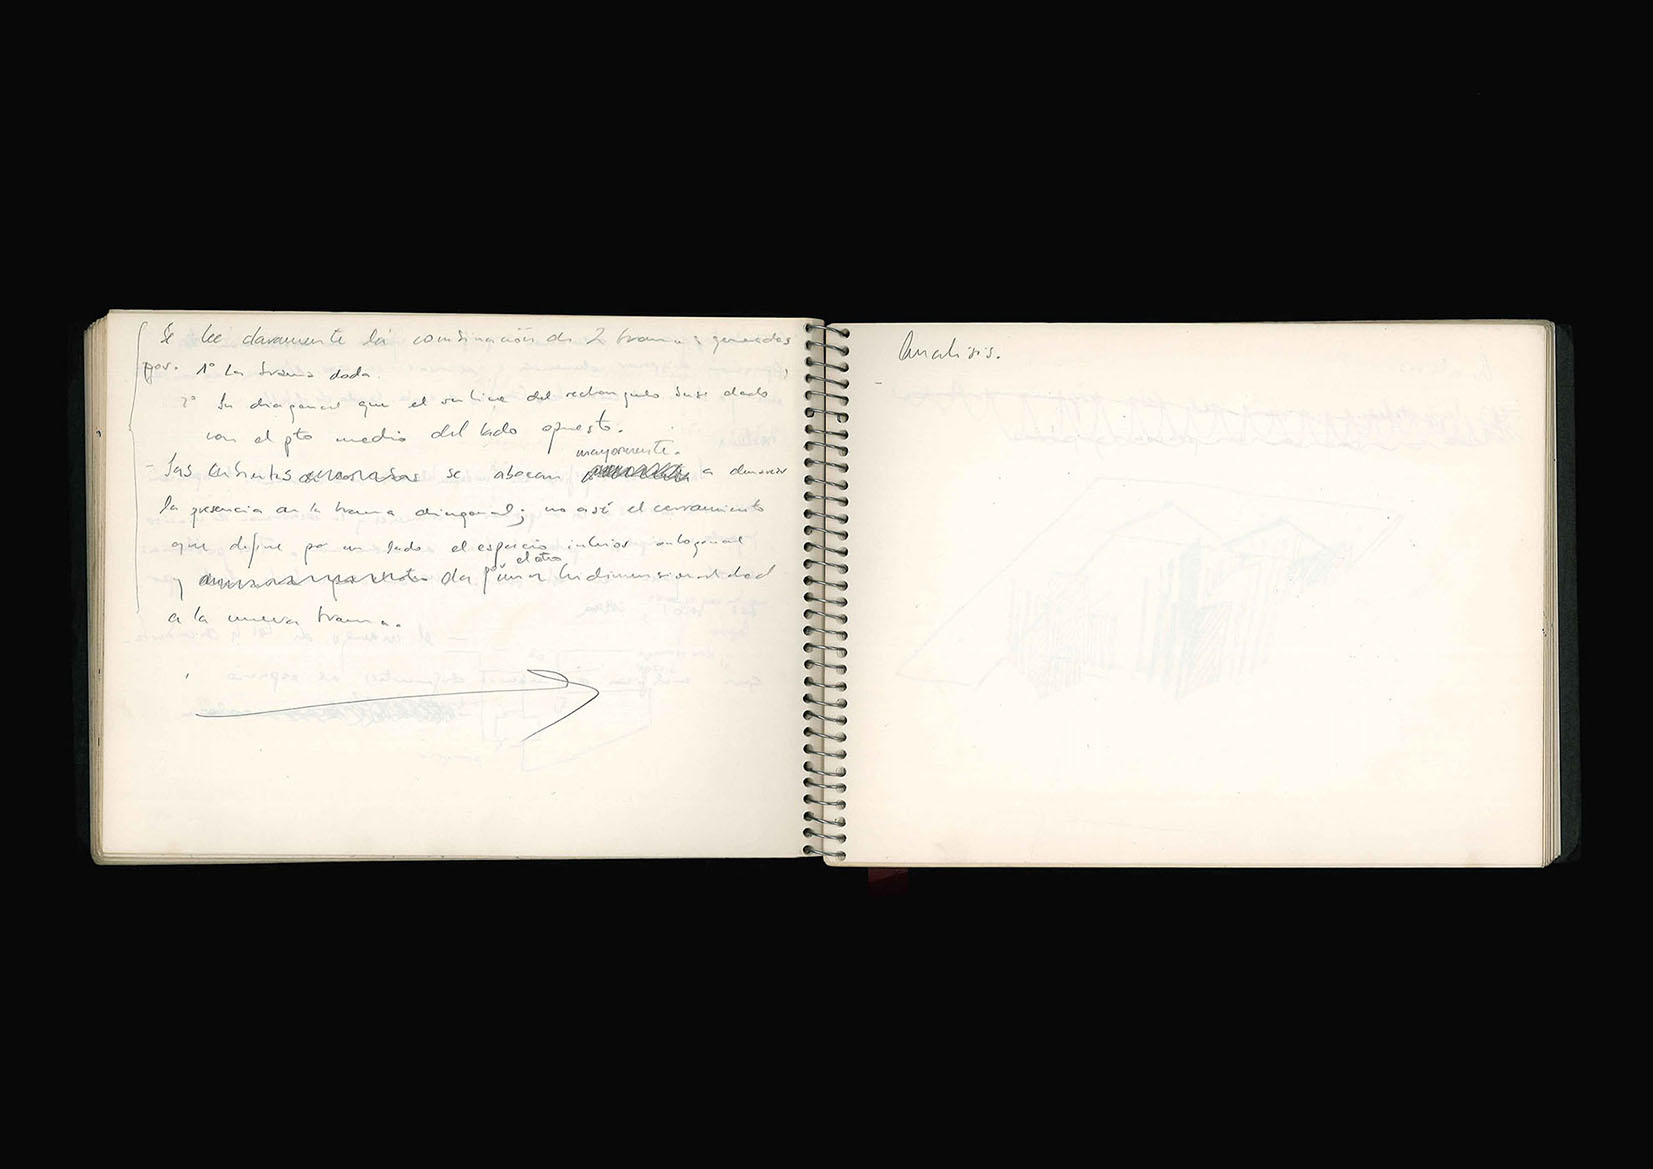 Se lee claramente la combinación de 2 tramas generadas
por. 1º La trama dada.
2º La diagonal que el vertice del rectangulo base dado
con el pto medio del lado opuesto.
mayormente.
- Las cubiertas se abocan a denunciar
la presencia de la trama diagonal; no así el cerramiento
que define por un lado el espacio interior ortogonal
el otro
y da pº una bidimensionalidad
a la nueva trama.
Analisis.
-